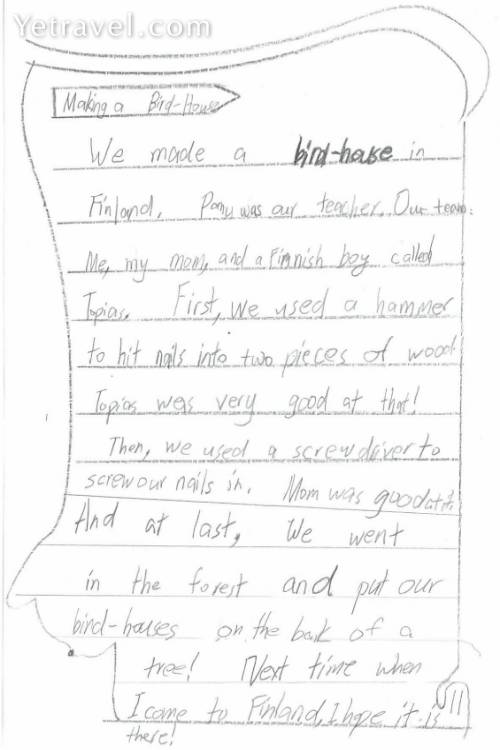 Yetravel.com
Making a Bird-House
We made a bird-house in
Finland. Pony was our teacher. Our team:
Me, my mom, and a Finnish boy called
Topias. First, we used a hammer
to hit nails into two pieces of wood
Topias was very good at that!
Then, we used a screwdriver to
screw our nails in. Mom was good at it.
And at last, We went
in the forest and put our
bird-houses on the bark of a
tree! Next time when
I come to Finland, I hope it is
there!